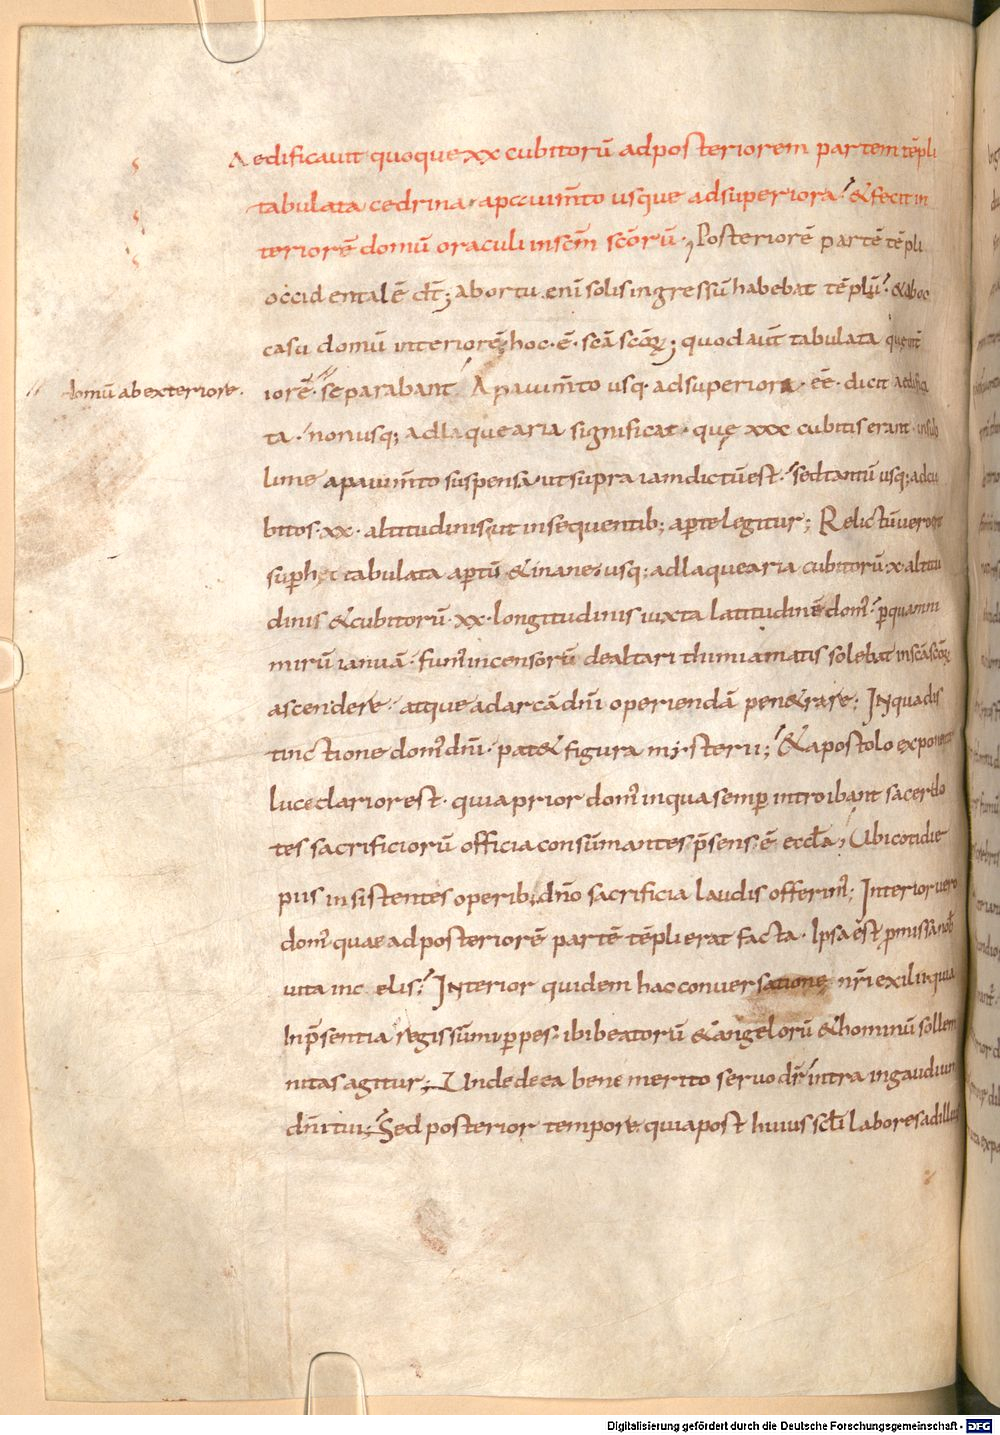 Aedificauit quoque xx cubitorū adposteriorem partem tēpli
tabulata cedrina · apauim̄to usque adsuperiora · & fecit in
teriorē domū oraculi insc̄m sc̄orū · Posteriorē partē tēpli
occidentalē dt̄; abortu eni solis ingressū habebat tēplū · & aboc
casu domū interiorē hoc · ē · sc̄a sc̄oꝝ; quod aut̄ tabulata
domū ab exteriore ·
iorē · separabant Apauim̄to usq · adsuperiora · eē · dicit aedifica
ta · non usq; adlaquearia significat · quę xxx cubitis erant · insub
lime apauim̄to suspensa ut supra iam dictū est · sed tantū usq; adcu
bitos · xx · altitudinis ut in sequentib; aꝑte legitur; Relictū uero
suꝑ hęc tabulata aꝑtū & inane usq; adlaquearia cubitorū · x · altitu
dinis & cubitorū · xx · longitudinis iuxta latitudinē dom' · ꝑ quam ni
mirū ianuā · fum' incensorū dealtari thimiamatis solebat insc̄a sc̄oꝝ
ascendere · atque adarcā dn̄i operiendā penetrare; Inqua dis
tinctione dom' dn̄i · pat& figura mysterii; & apostolo exponente
luce clarior est · quia prior dom' inqua semꝑ introibant sacerdo
tes sacrificiorū officia consūmantes p̄sens · ē · eccl̄a; Ubi cotidie
piis insistentes operib; dn̄o sacrificia laudis offerim'; Interior uero
dom' quae adposteriorē partē tēpli erat facta · Ipsa est ꝓmissa nob̄
uita inc elis · Interior quidem hac conuersatione nr̄i exilii quia
Inp̄sentia regis sūmi ꝑpes · ibi beatorū & angelorū & hominū sollem
nitas agitur; Unde deea bene merito seruo dr̄ intra ingaudium
dn̄i tui; Sed posterior tempore quia post huius sc̄li labores adillam
Digitalisierung gefördert durch die Deutsche Forschungsgemeinschaft · DFG